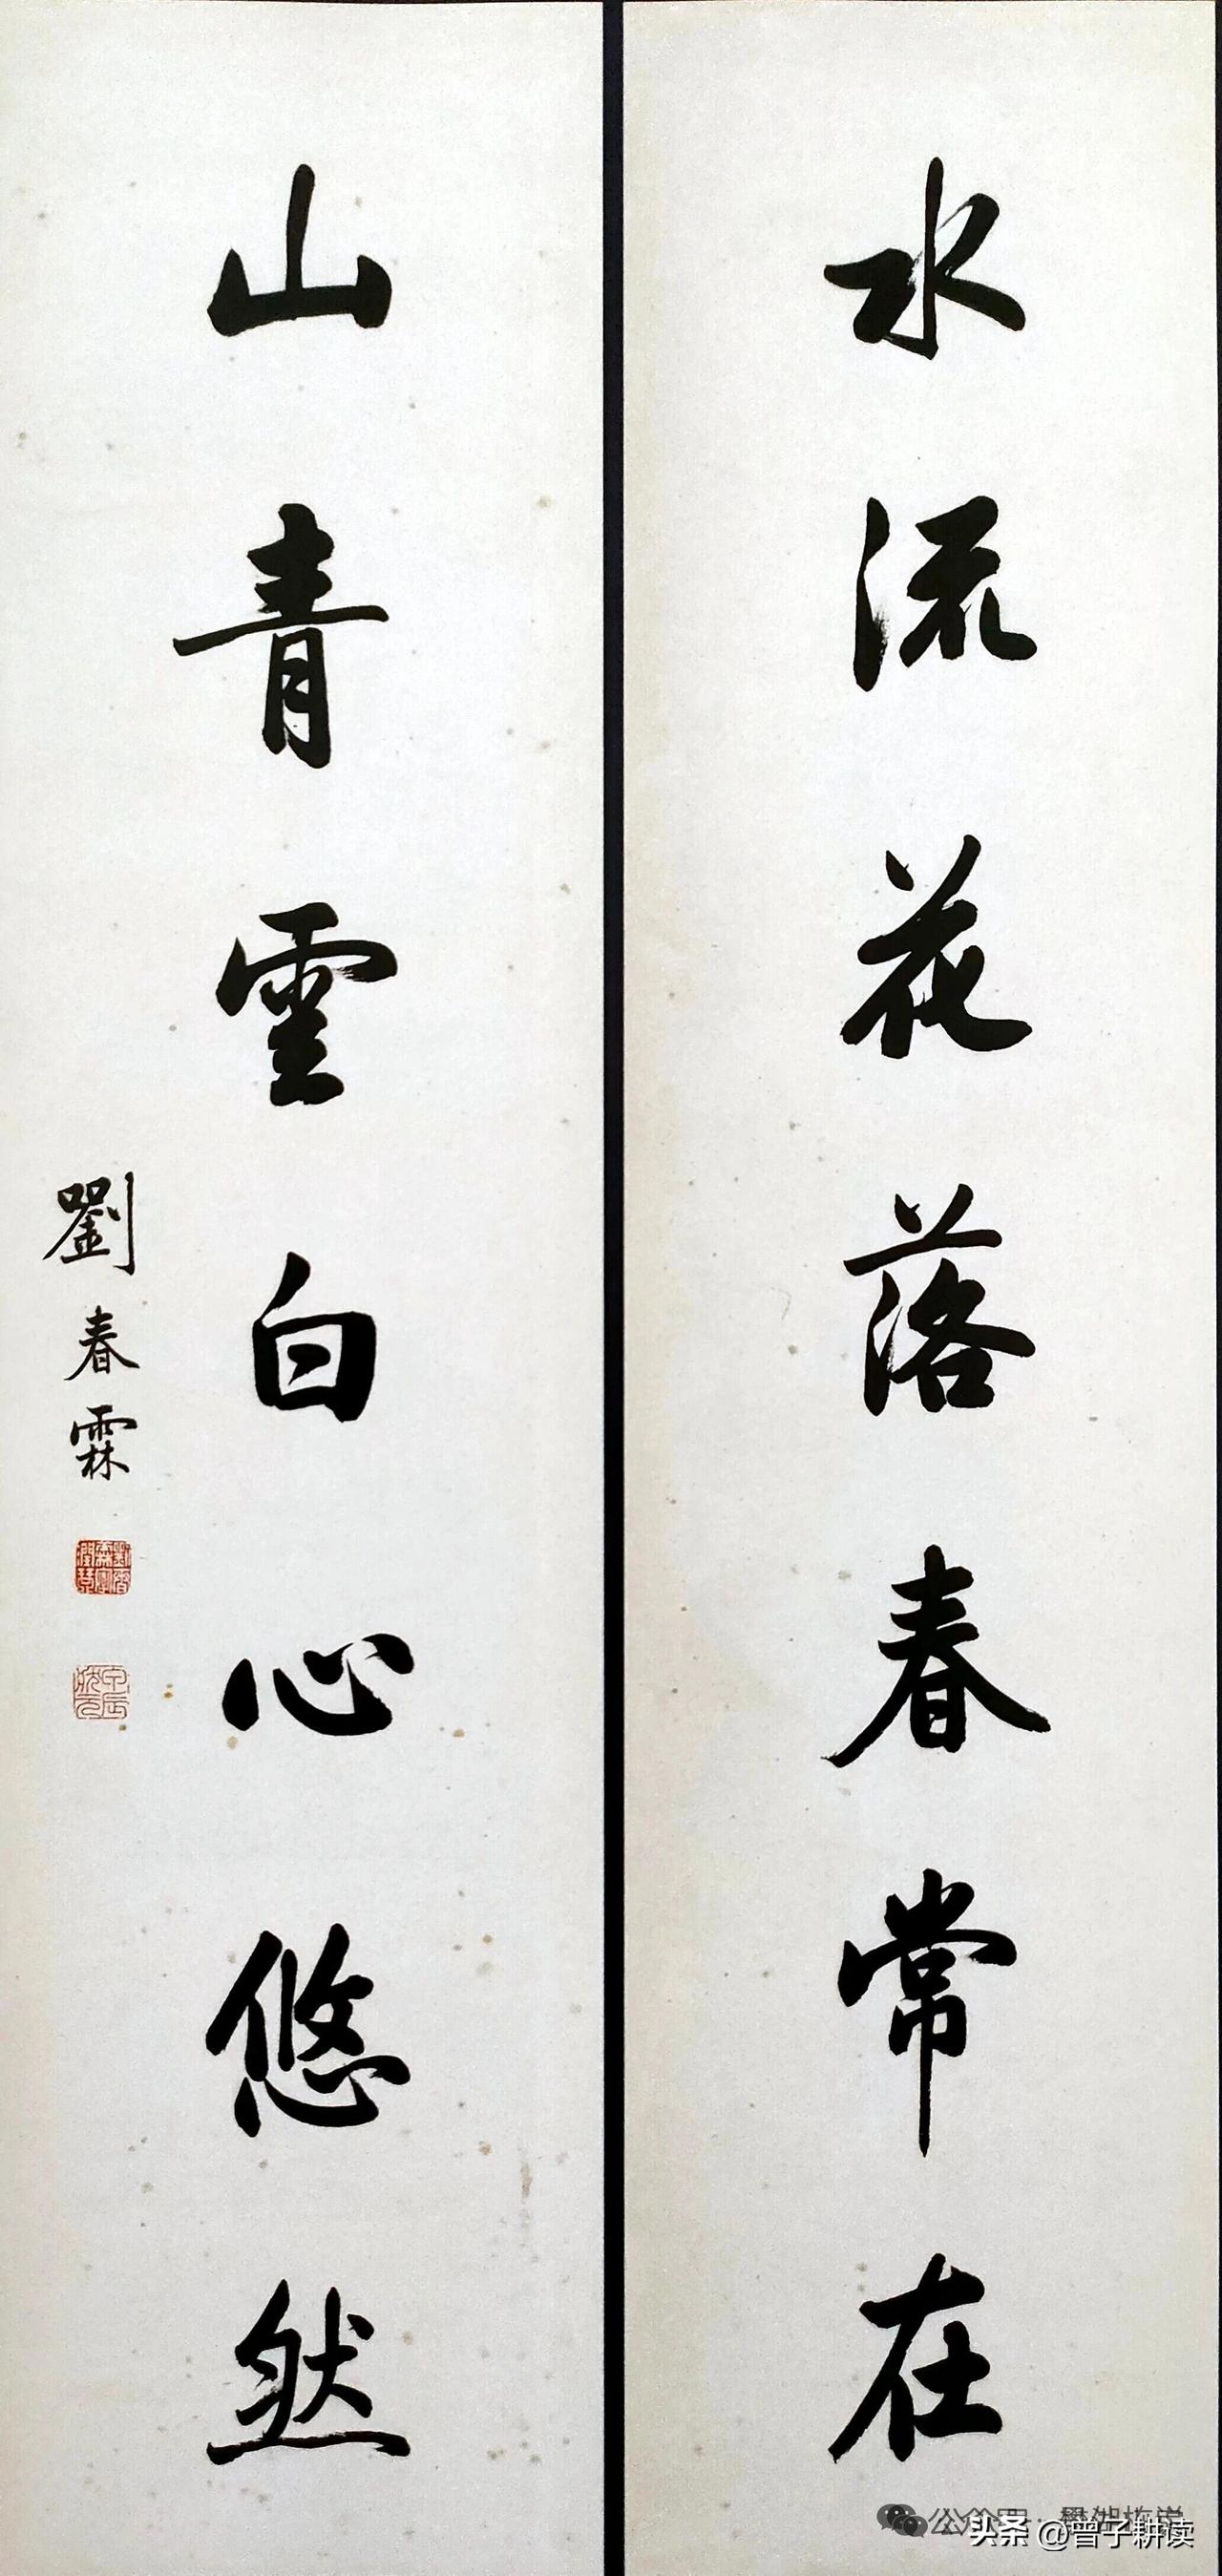 水流花落春常在
山青雲白心悠然
劉春霖
头条 @曾子耕读